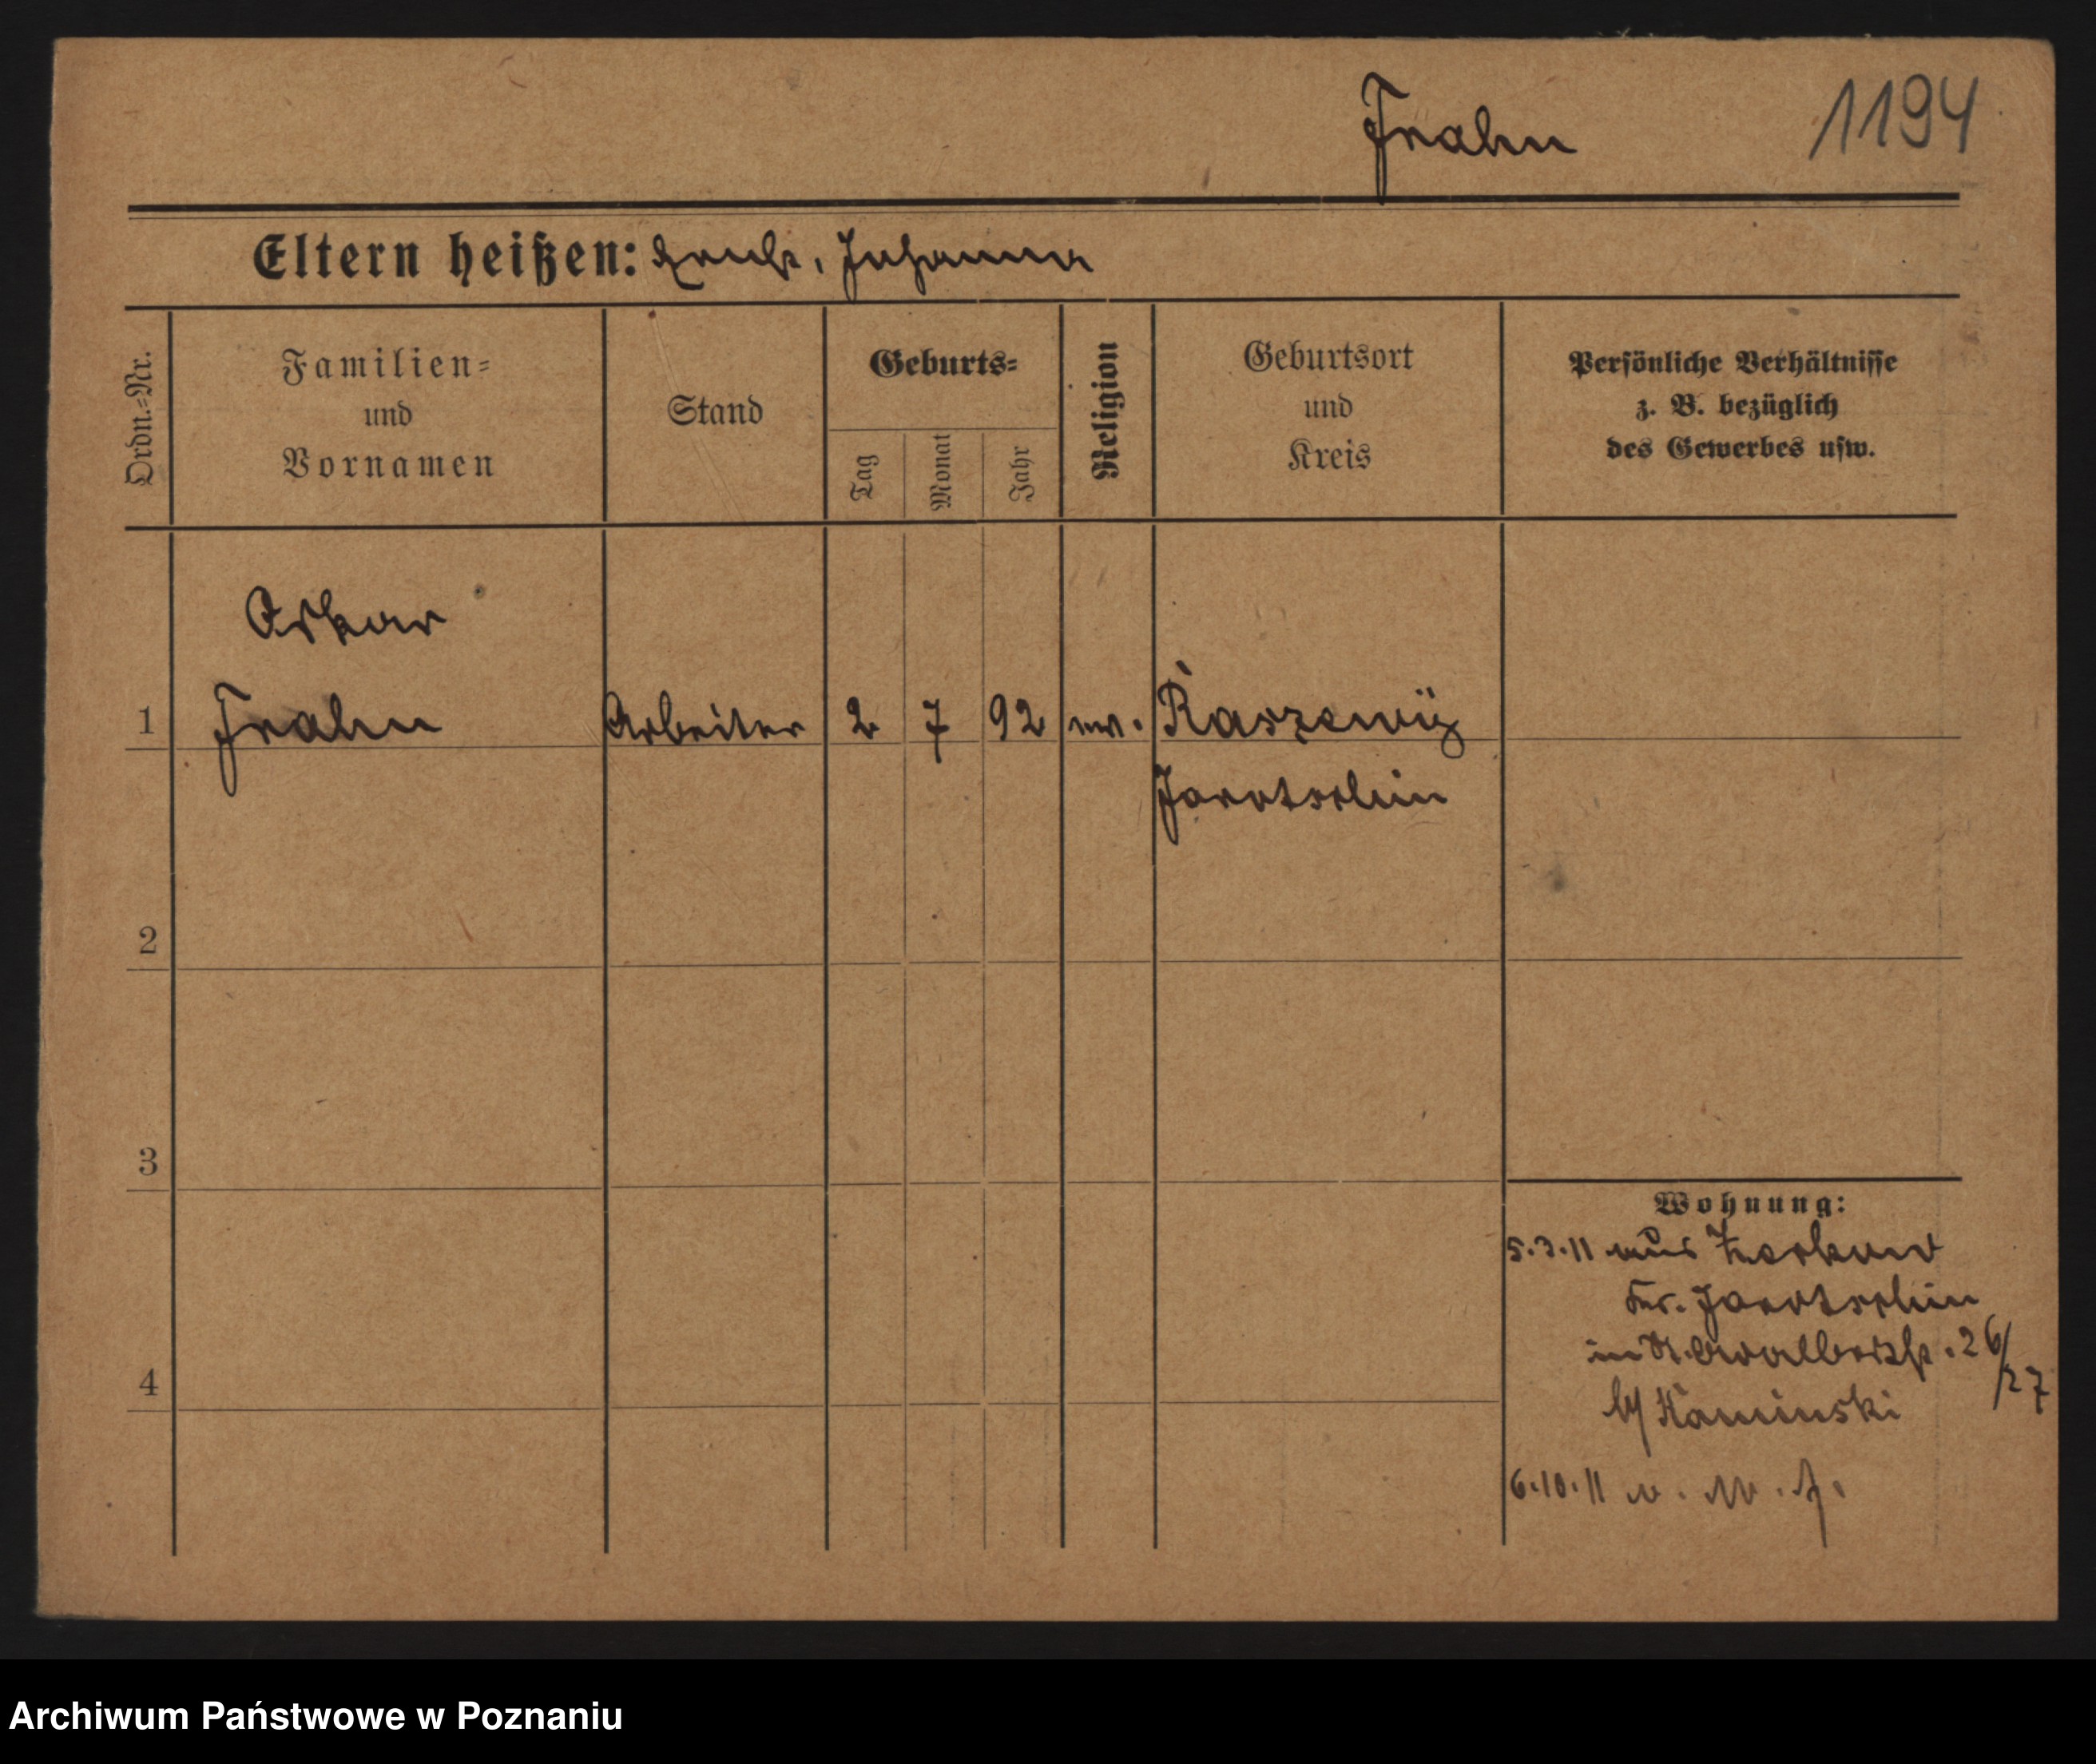 Frahn 1194
Eltern heißen: Johanna
Ordn.-Nr.
Familien-
und
Vornamen
Stand
Geburts-
Tag
Monat
Jahr
Religion
Geburtsort
und
Kreis
Persönliche Verhältnisse
z. B. bezüglich
des Gewerbes usw.
Oskar
1 Frahn Arbeiter 2 7 92 ev. Raszewÿ
Jarotschin
2
3
4
Wohnung:
5.3.11 aus Zerkow
Kr. Jarotschin
in St. Adalbertstr. 26/27
b/ Kaminski
6.10.11
Archiwum Państwowe w Poznaniu